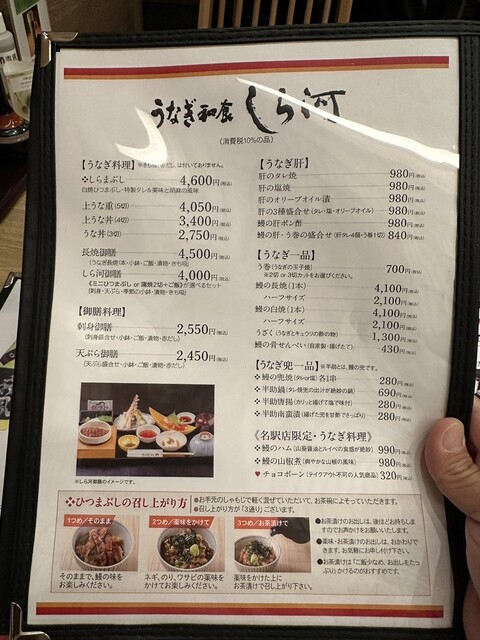 うなぎ和食 しら河
(消費税10%の品)
【うなぎ料理】
❖しらまぶし 4,600円(税込)
白焼ひつまぶし・特製タレ&薬味と胡麻の風味
上うな重(5切) 4,050円(税込)
上うな丼(4切) 3,400円(税込)
うな丼(3切) 2,750円(税込)
長焼御膳 4,500円(税込)
(うなぎ長焼1本・小鉢・ご飯・漬物・きも吸)
しら河御膳 4,000円(税込)
《ミニひつまぶし or 蒲焼2切+ご飯》が選べるセット
(刺身・天ぷら・季節の小鉢・漬物・きも吸)
【御膳料理】
刺身御膳 2,550円(税込)
(刺身盛合せ・小鉢・ご飯・漬物・赤だし)
天ぷら御膳 2,450円(税込)
(天ぷら盛合せ・小鉢・ご飯・漬物・赤だし)
※しら河御膳のイメージです。
【うなぎ肝】
肝のタレ焼 980円(税込)
肝の塩焼 980円(税込)
肝のオリーブオイル漬 980円(税込)
肝の3種盛合せ(タレ・塩・オリーブオイル) 980円(税込)
鰻の肝ポン酢 980円(税込)
鰻の肝・う巻の盛合せ(肝タレ4個・う巻1切) 840円(税込)
【うなぎ一品】
う巻(うなぎの玉子焼) 700円(税込)
※2切 or 3切カットをお選びください。
鰻の長焼(1本) 4,100円(税込)
ハーフサイズ 2,100円(税込)
鰻の白焼(1本) 4,100円(税込)
ハーフサイズ 2,100円(税込)
うざく(うなぎとキュウリの酢の物) 1,300円(税込)
鰻の骨せんべい(自家製・揚げたて) 430円(税込)
【うなぎ兜一品】※半助とは、鰻の兜です。
❖鰻の兜焼(タレor塩)各1串 280円(税込)
❖半助鍋(タレ焼兜の出汁が絶妙の鍋) 690円(税込)
❖半助唐揚(カリッと揚げて塩で味付) 280円(税込)
❖半助南蛮漬(揚げた兜を甘酢でさっぱり) 280円(税込)
《名駅店限定・うなぎ料理》
❖鰻のハム(山葵醤油とルイベの食感が絶妙) 990円(税込)
❖鰻の山椒煮(爽やかな山椒の風味) 980円(税込)
♥チョコボーン(テイクアウト不可の人気商品) 320円(税込)
❖ひつまぶしの召し上がり方
●お手元のしゃもじで軽く混ぜていただいて、お茶碗によそっていただきます。
●召し上がり方が「3通り」ございます。
1つめ/そのまま
そのままで、鰻の味を
お楽しみください。
2つめ/薬味をかけて
ネギ、のり、ワサビの薬味を
かけてお楽しみください。
3つめ/お茶漬けで
薬味をかけた上に
お茶漬けで召し上がり下さい。
●お茶漬けのお出しは、後ほどお持ちしま
すのでお声かけをお願いいたします。
●薬味・お茶漬けのお出しは、おかわりで
きます。お気軽にお申し付け下さい。
●お茶漬けは『ご飯少なめ、お出しをたっ
ぷり』かけるのがおすすめです。